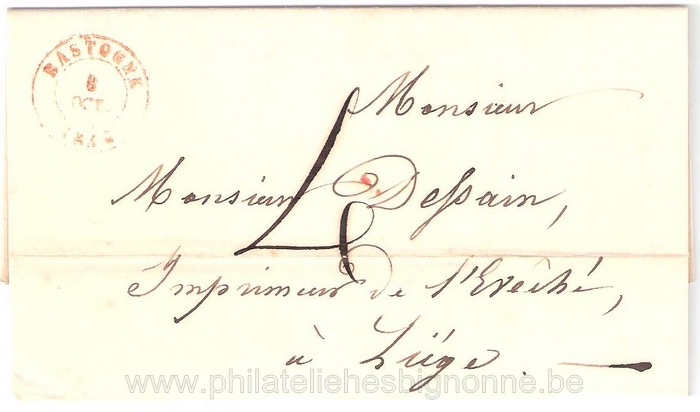 BASTOGNE
8
OCT.
Monsieur
4
Monsieur Dessain,
Imprimeur de l'Evêché,
à Liége.
www.philateliehesbignonne.be